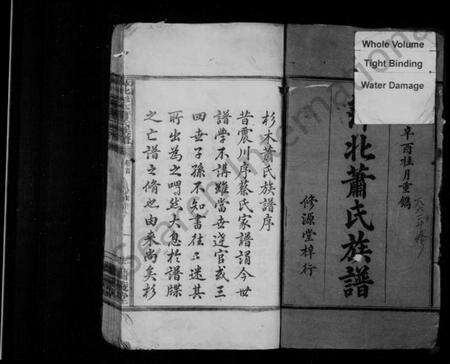 Whole Volume
Tight Binding
Water Damage
辛酉桂月重鐫
北蕭氏族譜
修源堂梓行
杉木蕭氏族譜序
昔震川序蔡氏家譜謂今世
譜學不講雖當世達官或三
四世子孫不知書往々迷其
所出為之喟然大息於譜牒
之亡譜之脩也由來尚矣杉